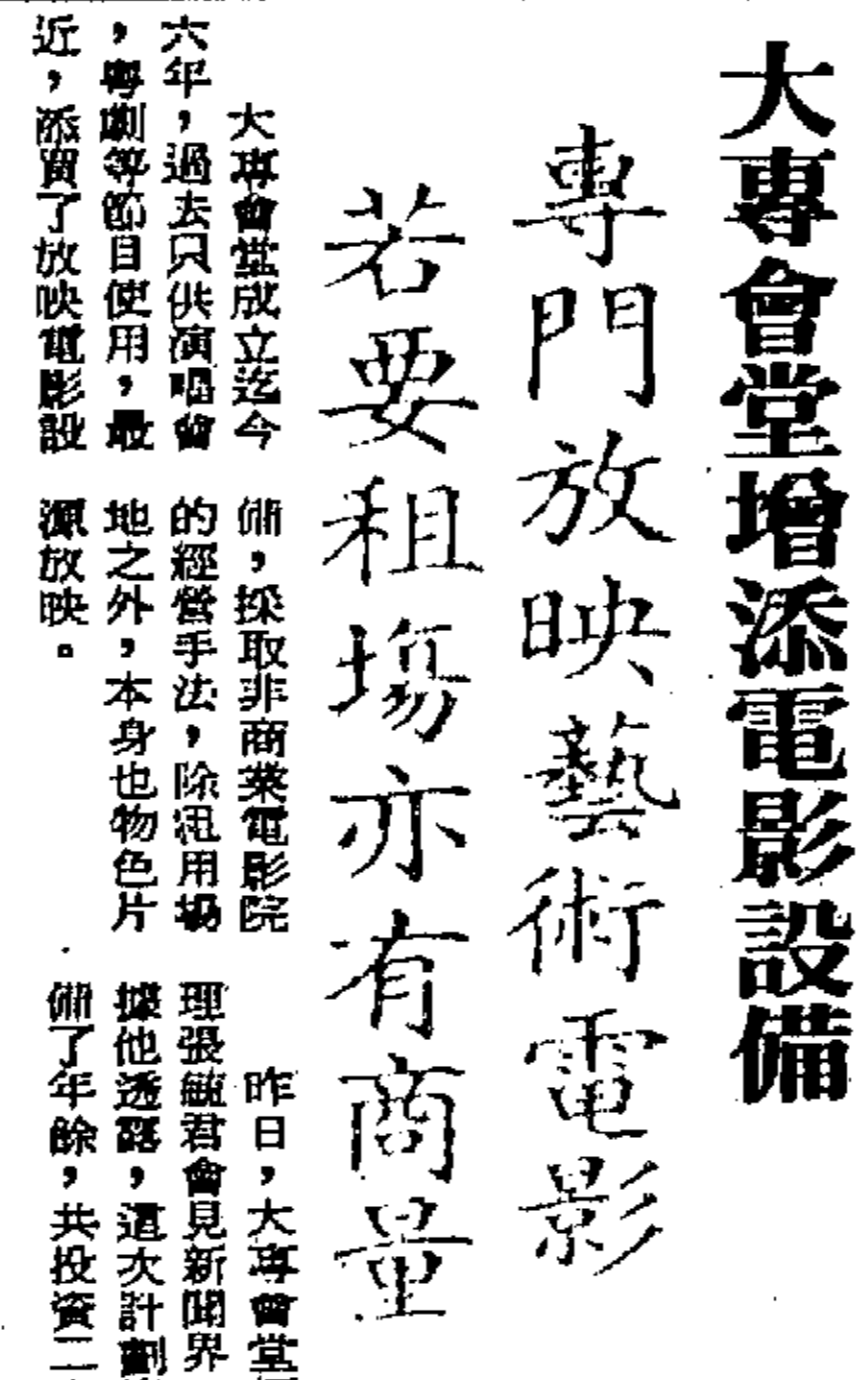 大專會堂增添電影設備
專門放映藝術電影
若要租場亦有商量
大專會堂成立迄今
六年，過去只供演唱會
，粵劇等節目使用，最
近，添買了放映電影設
備，採取非商業電影院
的經營手法，除租用場
地之外，本身也物色片
源放映。
昨日，大專會堂
理張鏇君會見新聞界
據他透露，這次計劃
備了年餘，共投資二